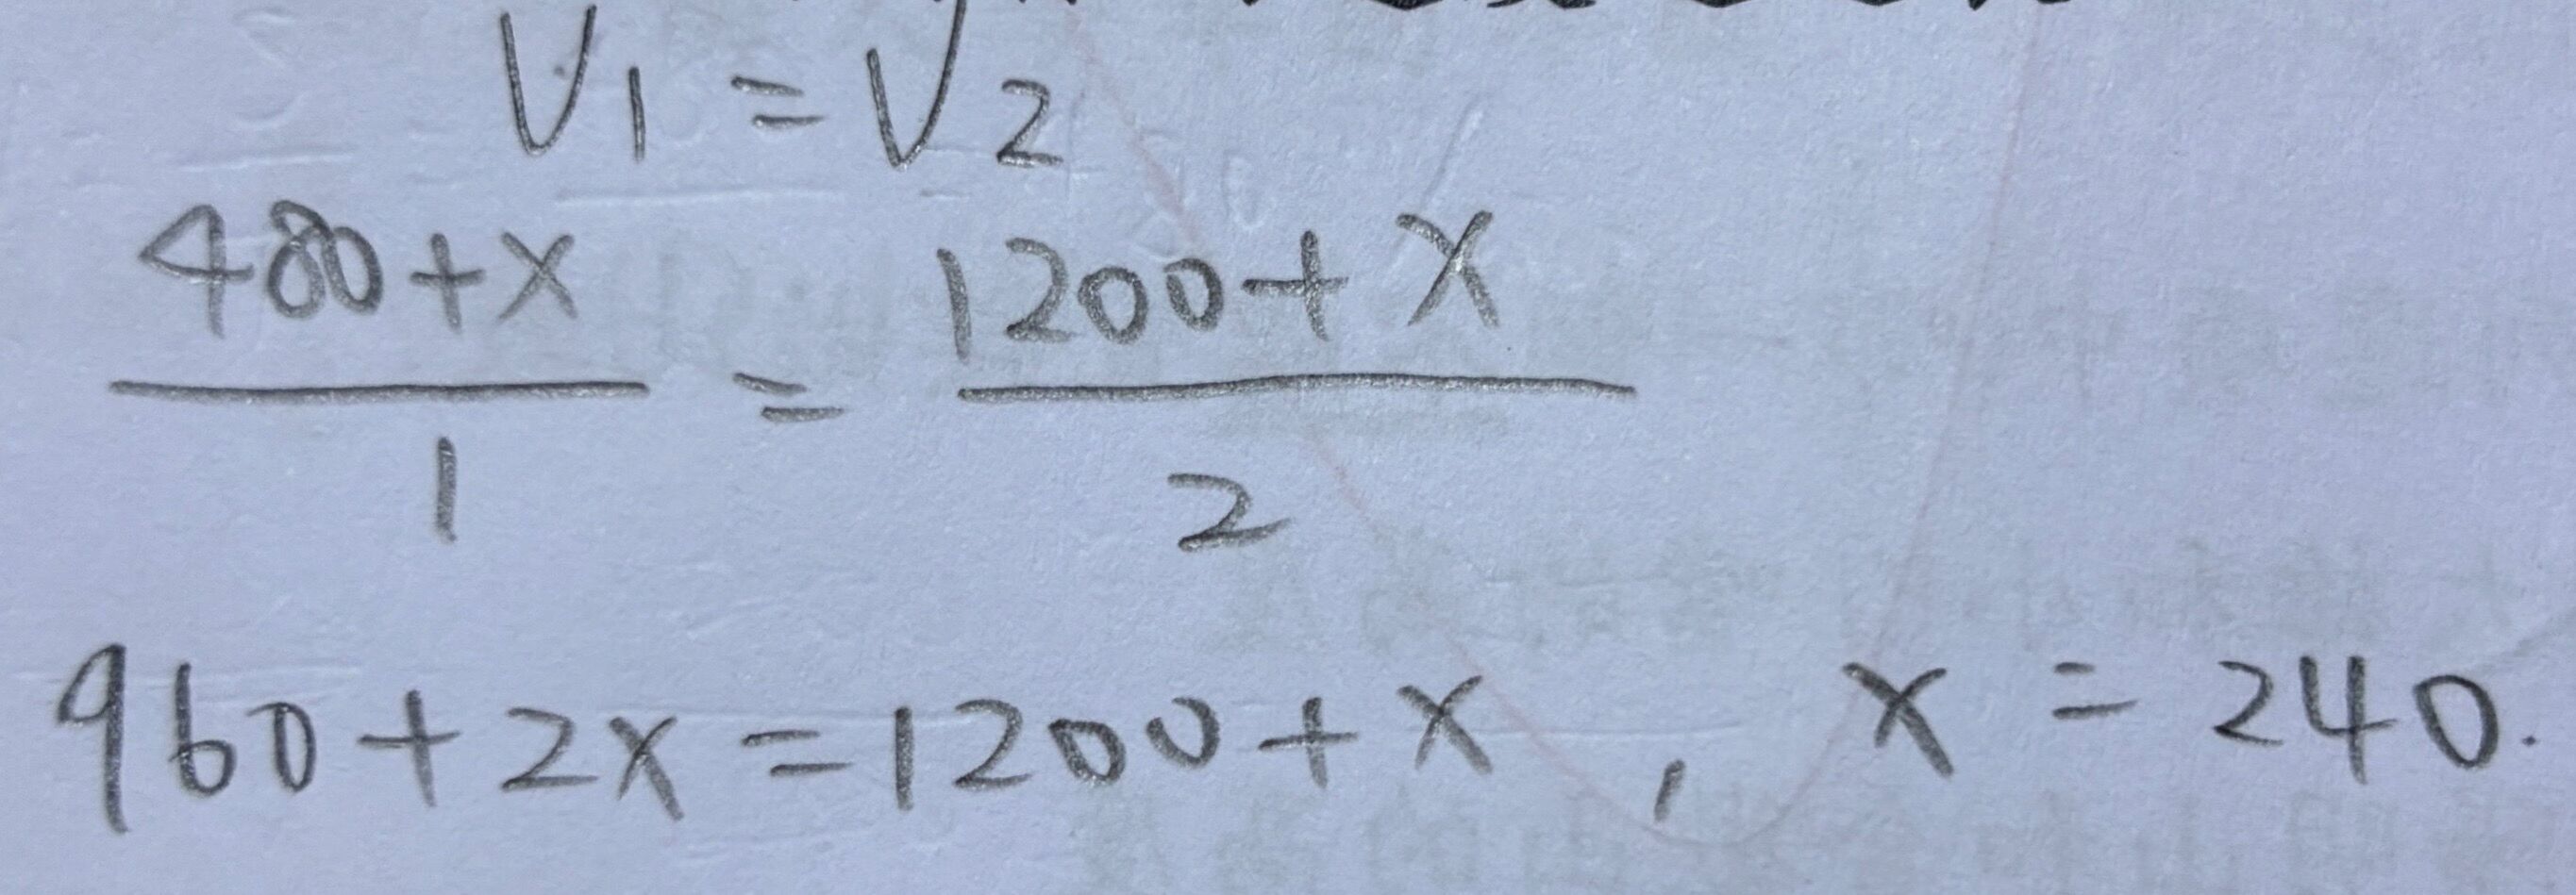 V1 = V2
480+x / 1 = 1200+x / 2
960+2x=1200+x , x=240.